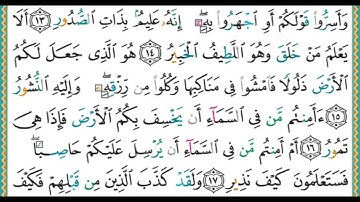 وَأَسِرُّوا۟ قَوْلَكُمْ أَوِ ٱجْهَرُوا۟ بِهِۦٓ ۖ إِنَّهُۥ عَلِيمٌۢ بِذَاتِ ٱلصُّدُورِ ١٣ أَلَا
يَعْلَمُ مَنْ خَلَقَ وَهُوَ ٱللَّطِيفُ ٱلْخَبِيرُ ١٤ هُوَ ٱلَّذِى جَعَلَ لَكُمُ
ٱلْأَرْضَ ذَلُولًا فَٱمْشُوا۟ فِى مَنَاكِبِهَا وَكُلُوا۟ مِن رِّزْقِهِۦ ۖ وَإِلَيْهِ ٱلنُّشُورُ
١٥ ءَأَمِنتُم مَّن فِى ٱلسَّمَآءِ أَن يَخْسِفَ بِكُمُ ٱلْأَرْضَ فَإِذَا هِىَ
تَمُورُ ١٦ أَمْ أَمِنتُم مَّن فِى ٱلسَّمَآءِ أَن يُرْسِلَ عَلَيْكُمْ حَاصِبًا ۖ
فَسَتَعْلَمُونَ كَيْفَ نَذِيرِ ١٧ وَلَقَدْ كَذَّبَ ٱلَّذِينَ مِن قَبْلِهِمْ فَكَيْفَ